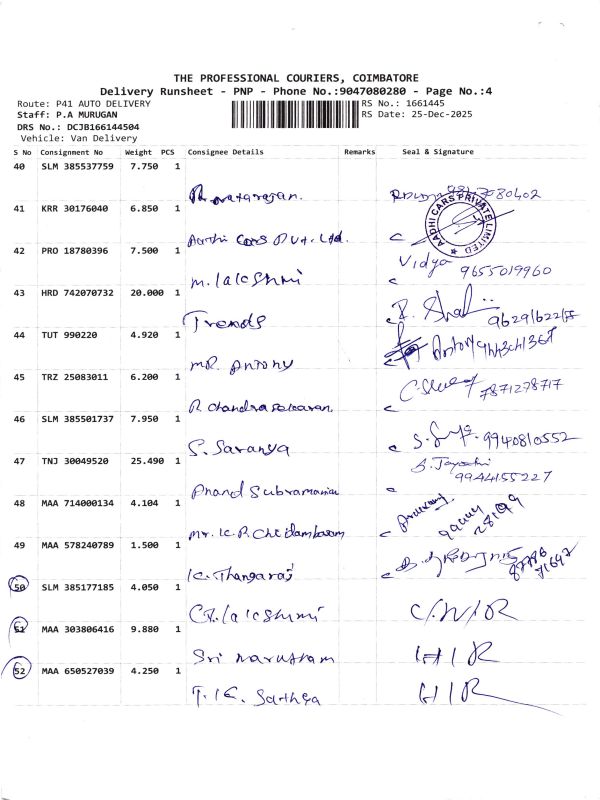 THE PROFESSIONAL COURIERS, COIMBATORE
Delivery Runsheet - PNP - Phone No.:9047080280 - Page No.:4
Route: P41 AUTO DELIVERY RS No.: 1661445
Staff: P.A MURUGAN RS Date: 25-Dec-2025
DRS No.: DCJB166144504
Vehicle: Van Delivery
S No Consignment No Weight PCS Consignee Details Remarks Seal & Signature
40 SLM 385537759 7.750 1
41 KRR 30176040 6.850 1
Aadhi Cars Pvt. Ltd.
AADHI CARS PRIVATE LIMITED
42 PRO 18780396 7.500 1
M. lakshmi Vidya 9655019960
43 HRD 742070732 20.000 1
Trends
44 TUT 990220 4.920 1
MR. Antony Antony
45 TRZ 25083011 6.200 1
R. Chandrasekaran. 7871278717
46 SLM 385501737 7.950 1
S. Saranya 9940810552
47 TNJ 30049520 25.490 1
Anand Subramanian 9944155227
48 MAA 714000134 4.104 1
Mr. K.R. Chidambaram
49 MAA 578240789 1.500 1
K. Thangaraj
50 SLM 385177185 4.050 1
51 MAA 303806416 9.880 1
52 MAA 650527039 4.250 1